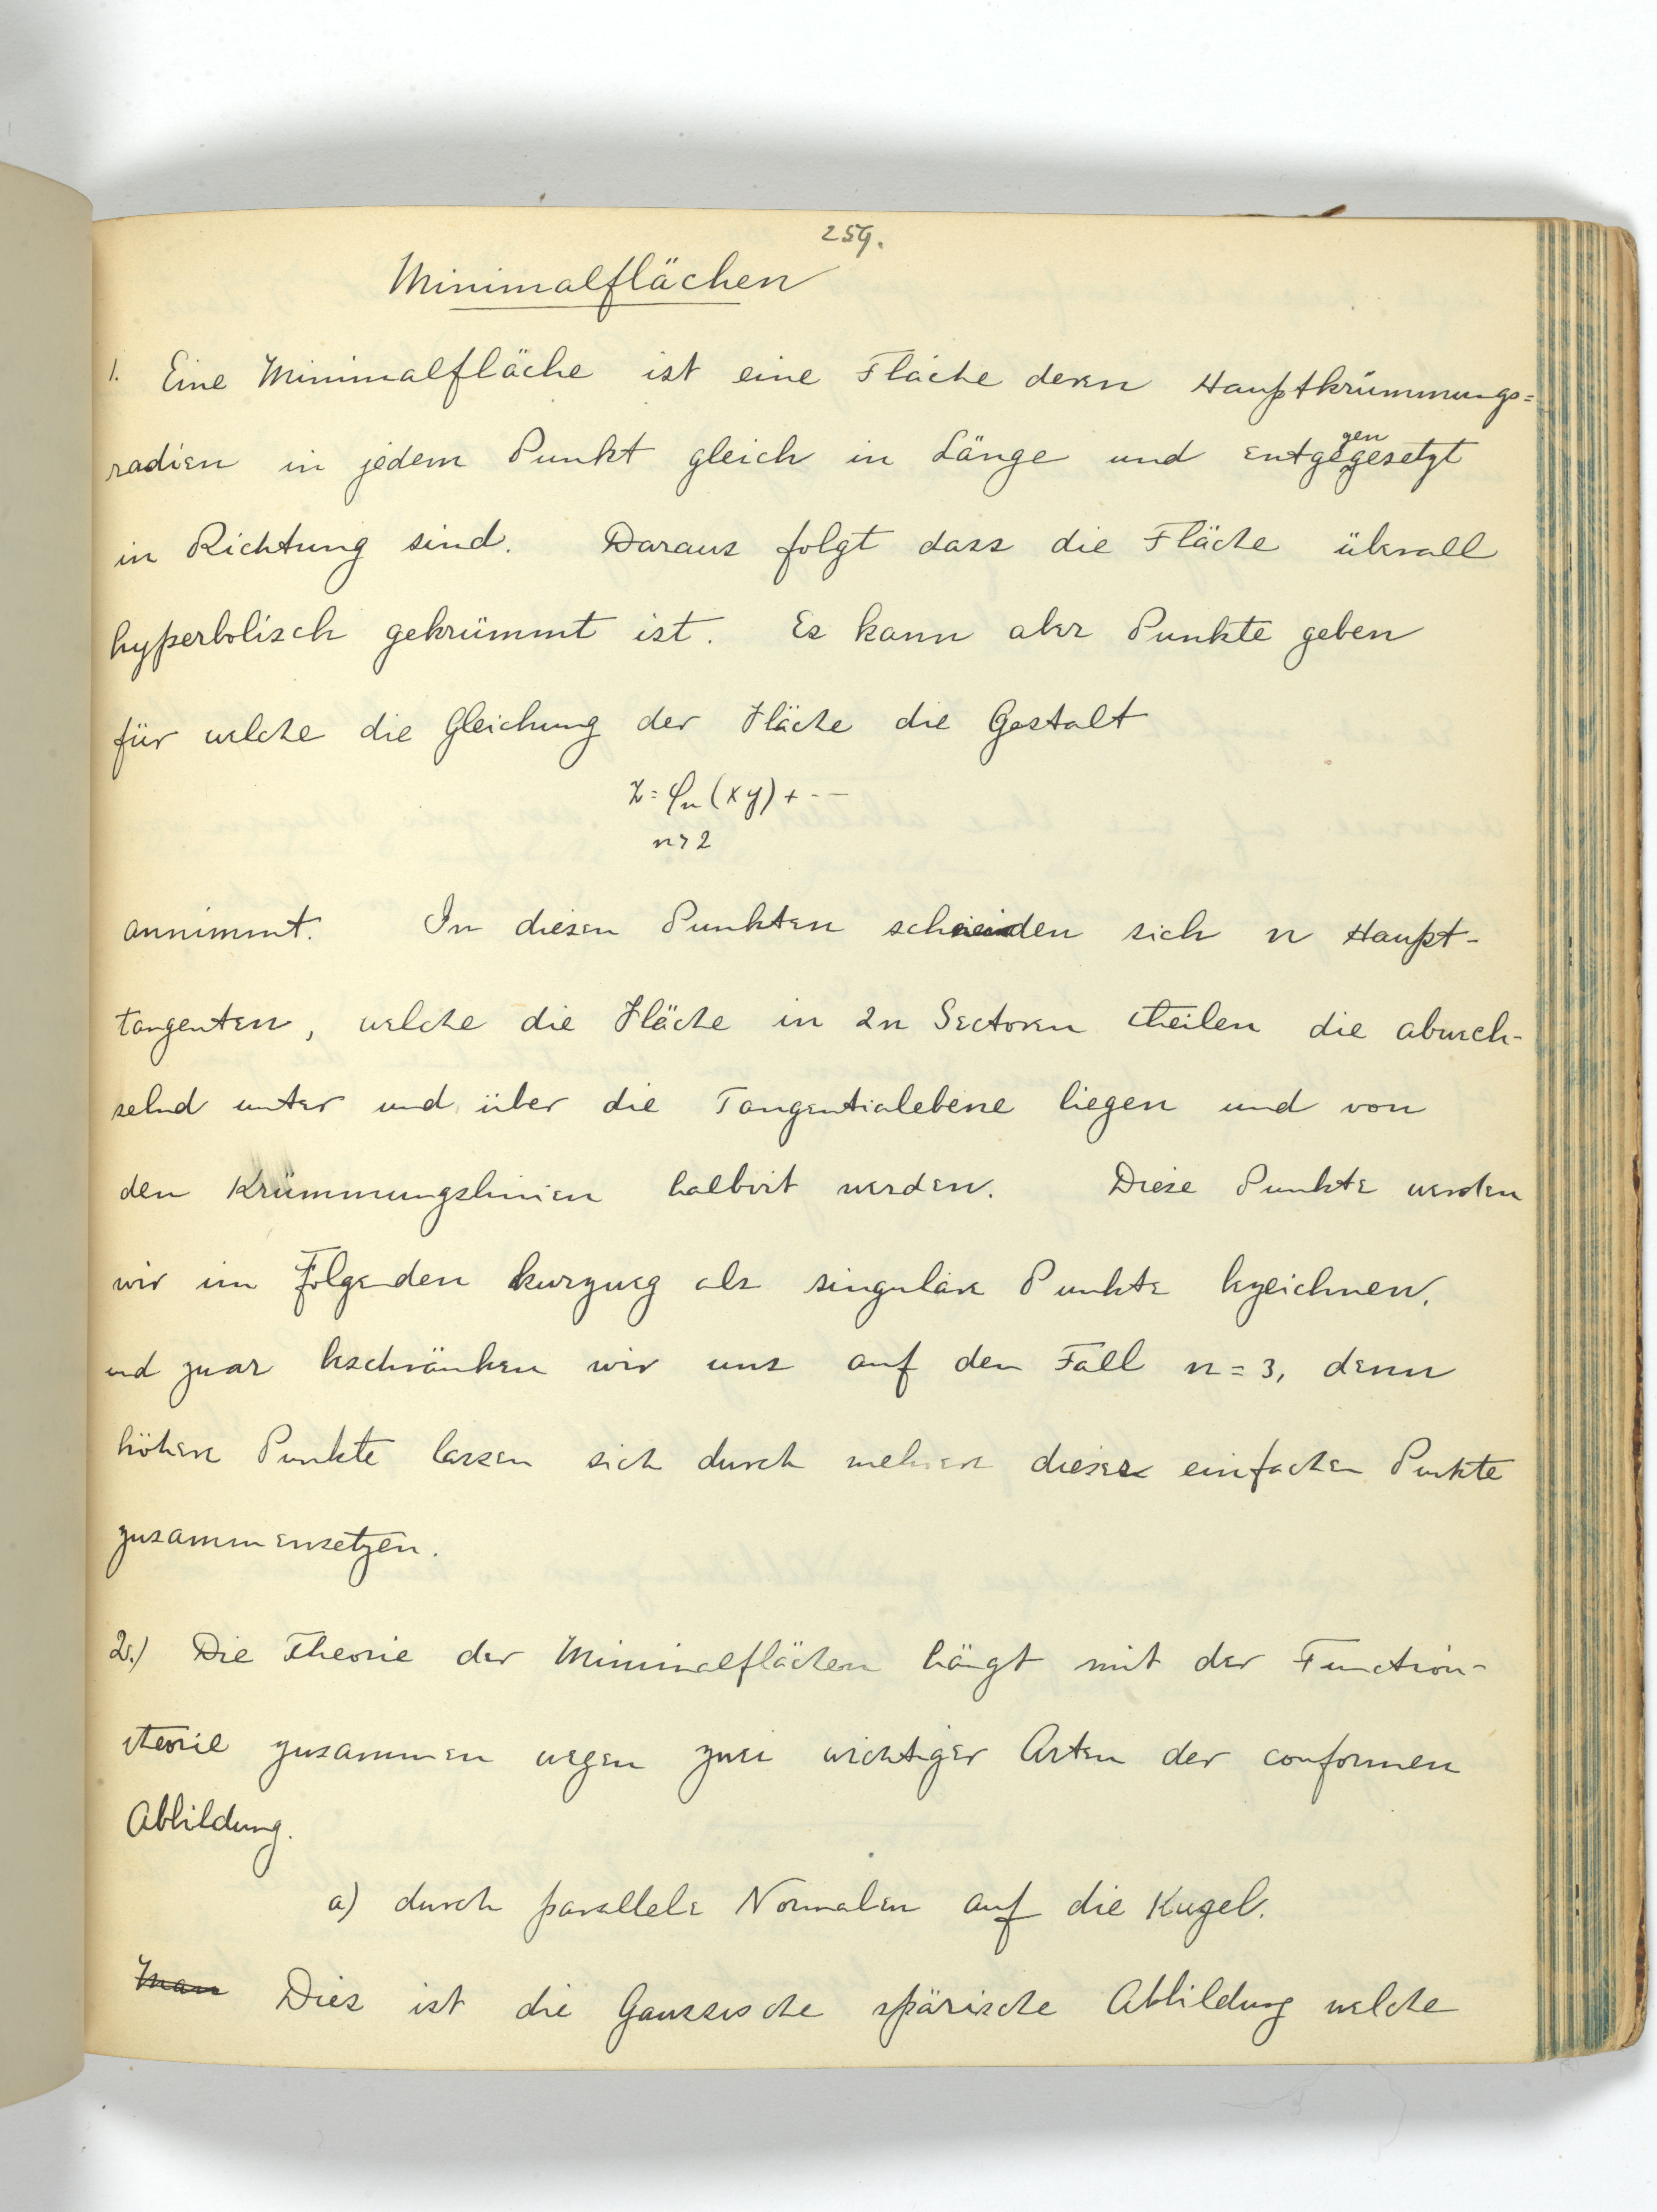 259.
Minimalflächen
1. Eine Minimalfläche ist eine Fläche deren Hauptkrümmungs=
radien in jedem Punkt gleich in Länge und entgegengesetzt
in Richtung sind. Daraus folgt dass die Fläche überall
hyperbolisch gekrümmt ist. Es kann aber Punkte geben
für welche die Gleichung der Fläche die Gestalt
z = φₙ(xy) + - —
n > 2
annimmt. In diesen Punkten schneiden sich n Haupt-
tangenten, welche die Fläche in 2n Sectoren theilen die abwech-
selnd unter und über die Tangentialebene liegen und von
den Krümmungslinien halbirt werden. Diese Punkte werden
wir im Folgenden kurzweg als singuläre Punkte bezeichnen.
und zwar beschränken wir uns auf den Fall n = 3, denn
höhere Punkte lassen sich durch mehrere dieser einfachen Punkte
zusammensetzen.
2.) Die Theorie der Minimalflächen hängt mit der Function-
theorie zusammen wegen zwei wichtiger Arten der conformen
Abbildung.
a) durch parallele Normalen auf die Kugel.
Man Dies ist die Gaussische spärische Abbildung welche